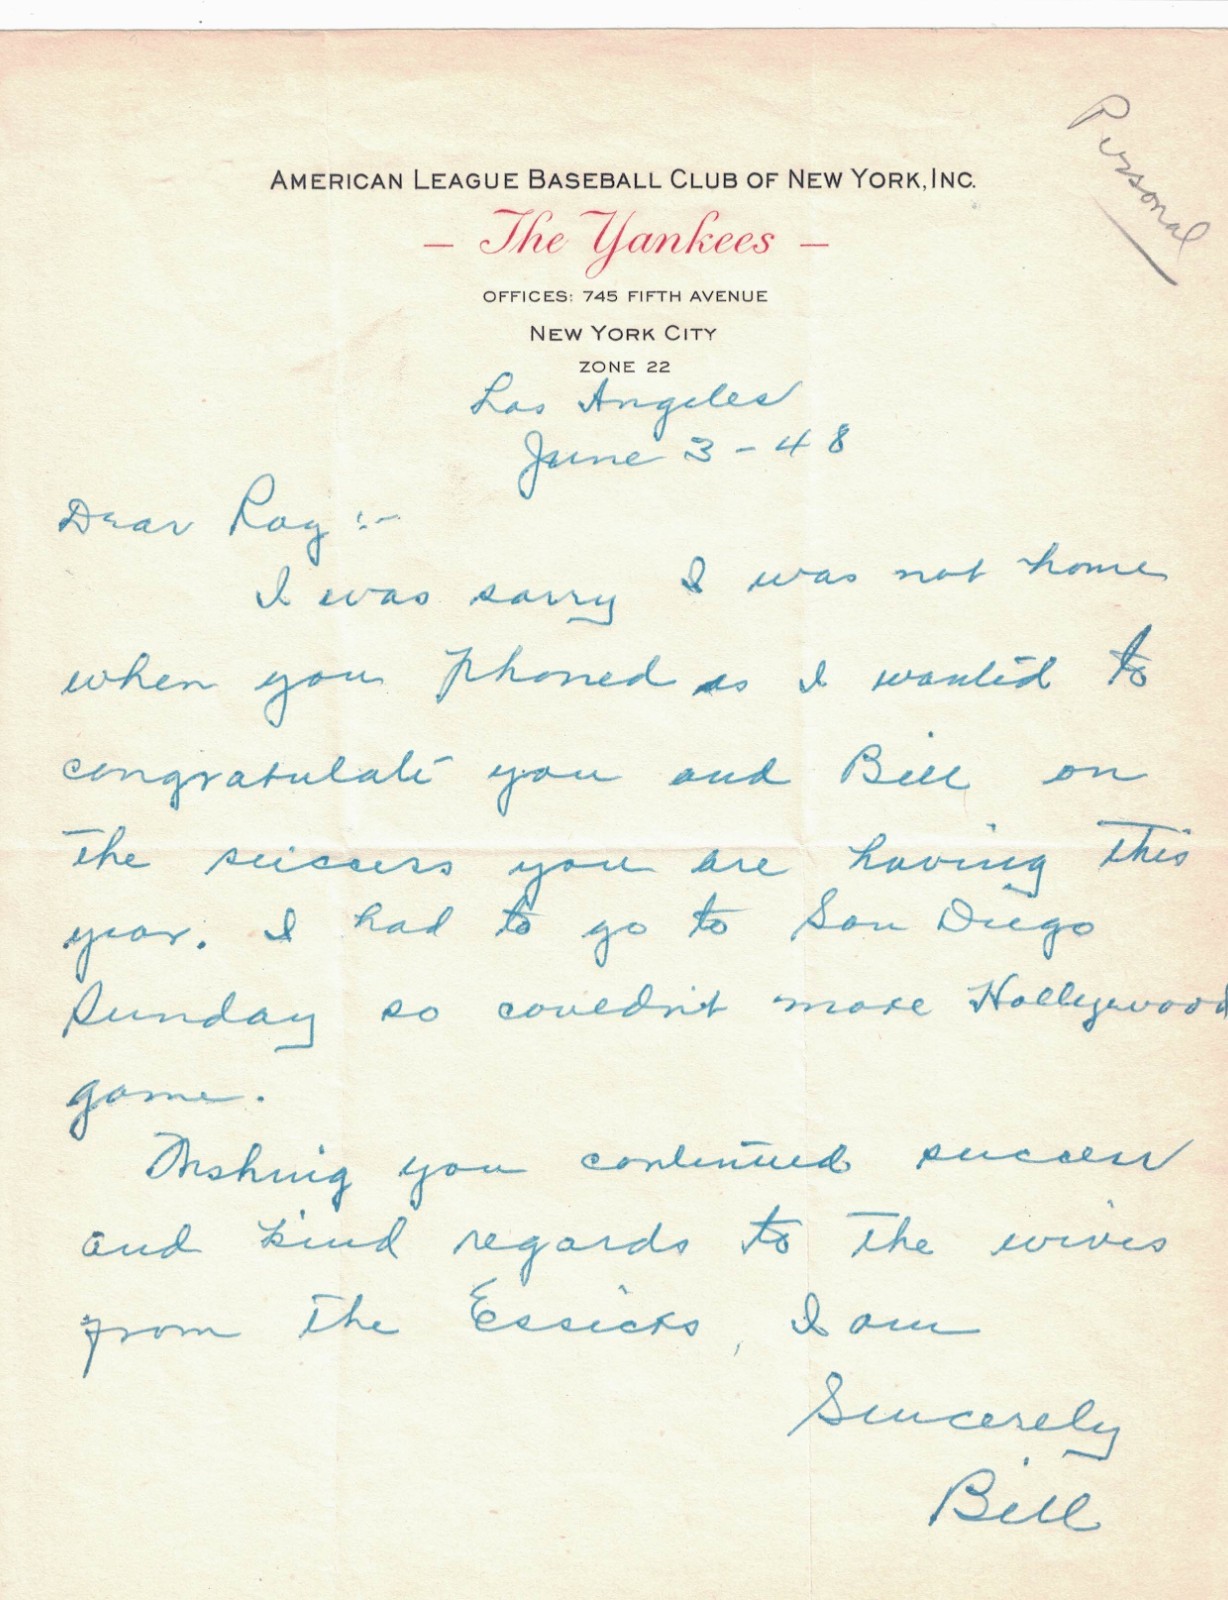 Personal
AMERICAN LEAGUE BASEBALL CLUB OF NEW YORK, INC.
— The Yankees —
OFFICES: 745 FIFTH AVENUE
NEW YORK CITY
ZONE 22
Los Angeles
June 3 - 48
Dear Ray :-
I was sorry I was not home
when you phoned as I wanted to
congratulate you and Bill on
the success you are having this
year. I had to go to San Diego
Sunday so couldn't make Hollywood
game.
Wishing you continued success
and kind regards to the wives
from the Essicks, I am
Sincerely
Bill